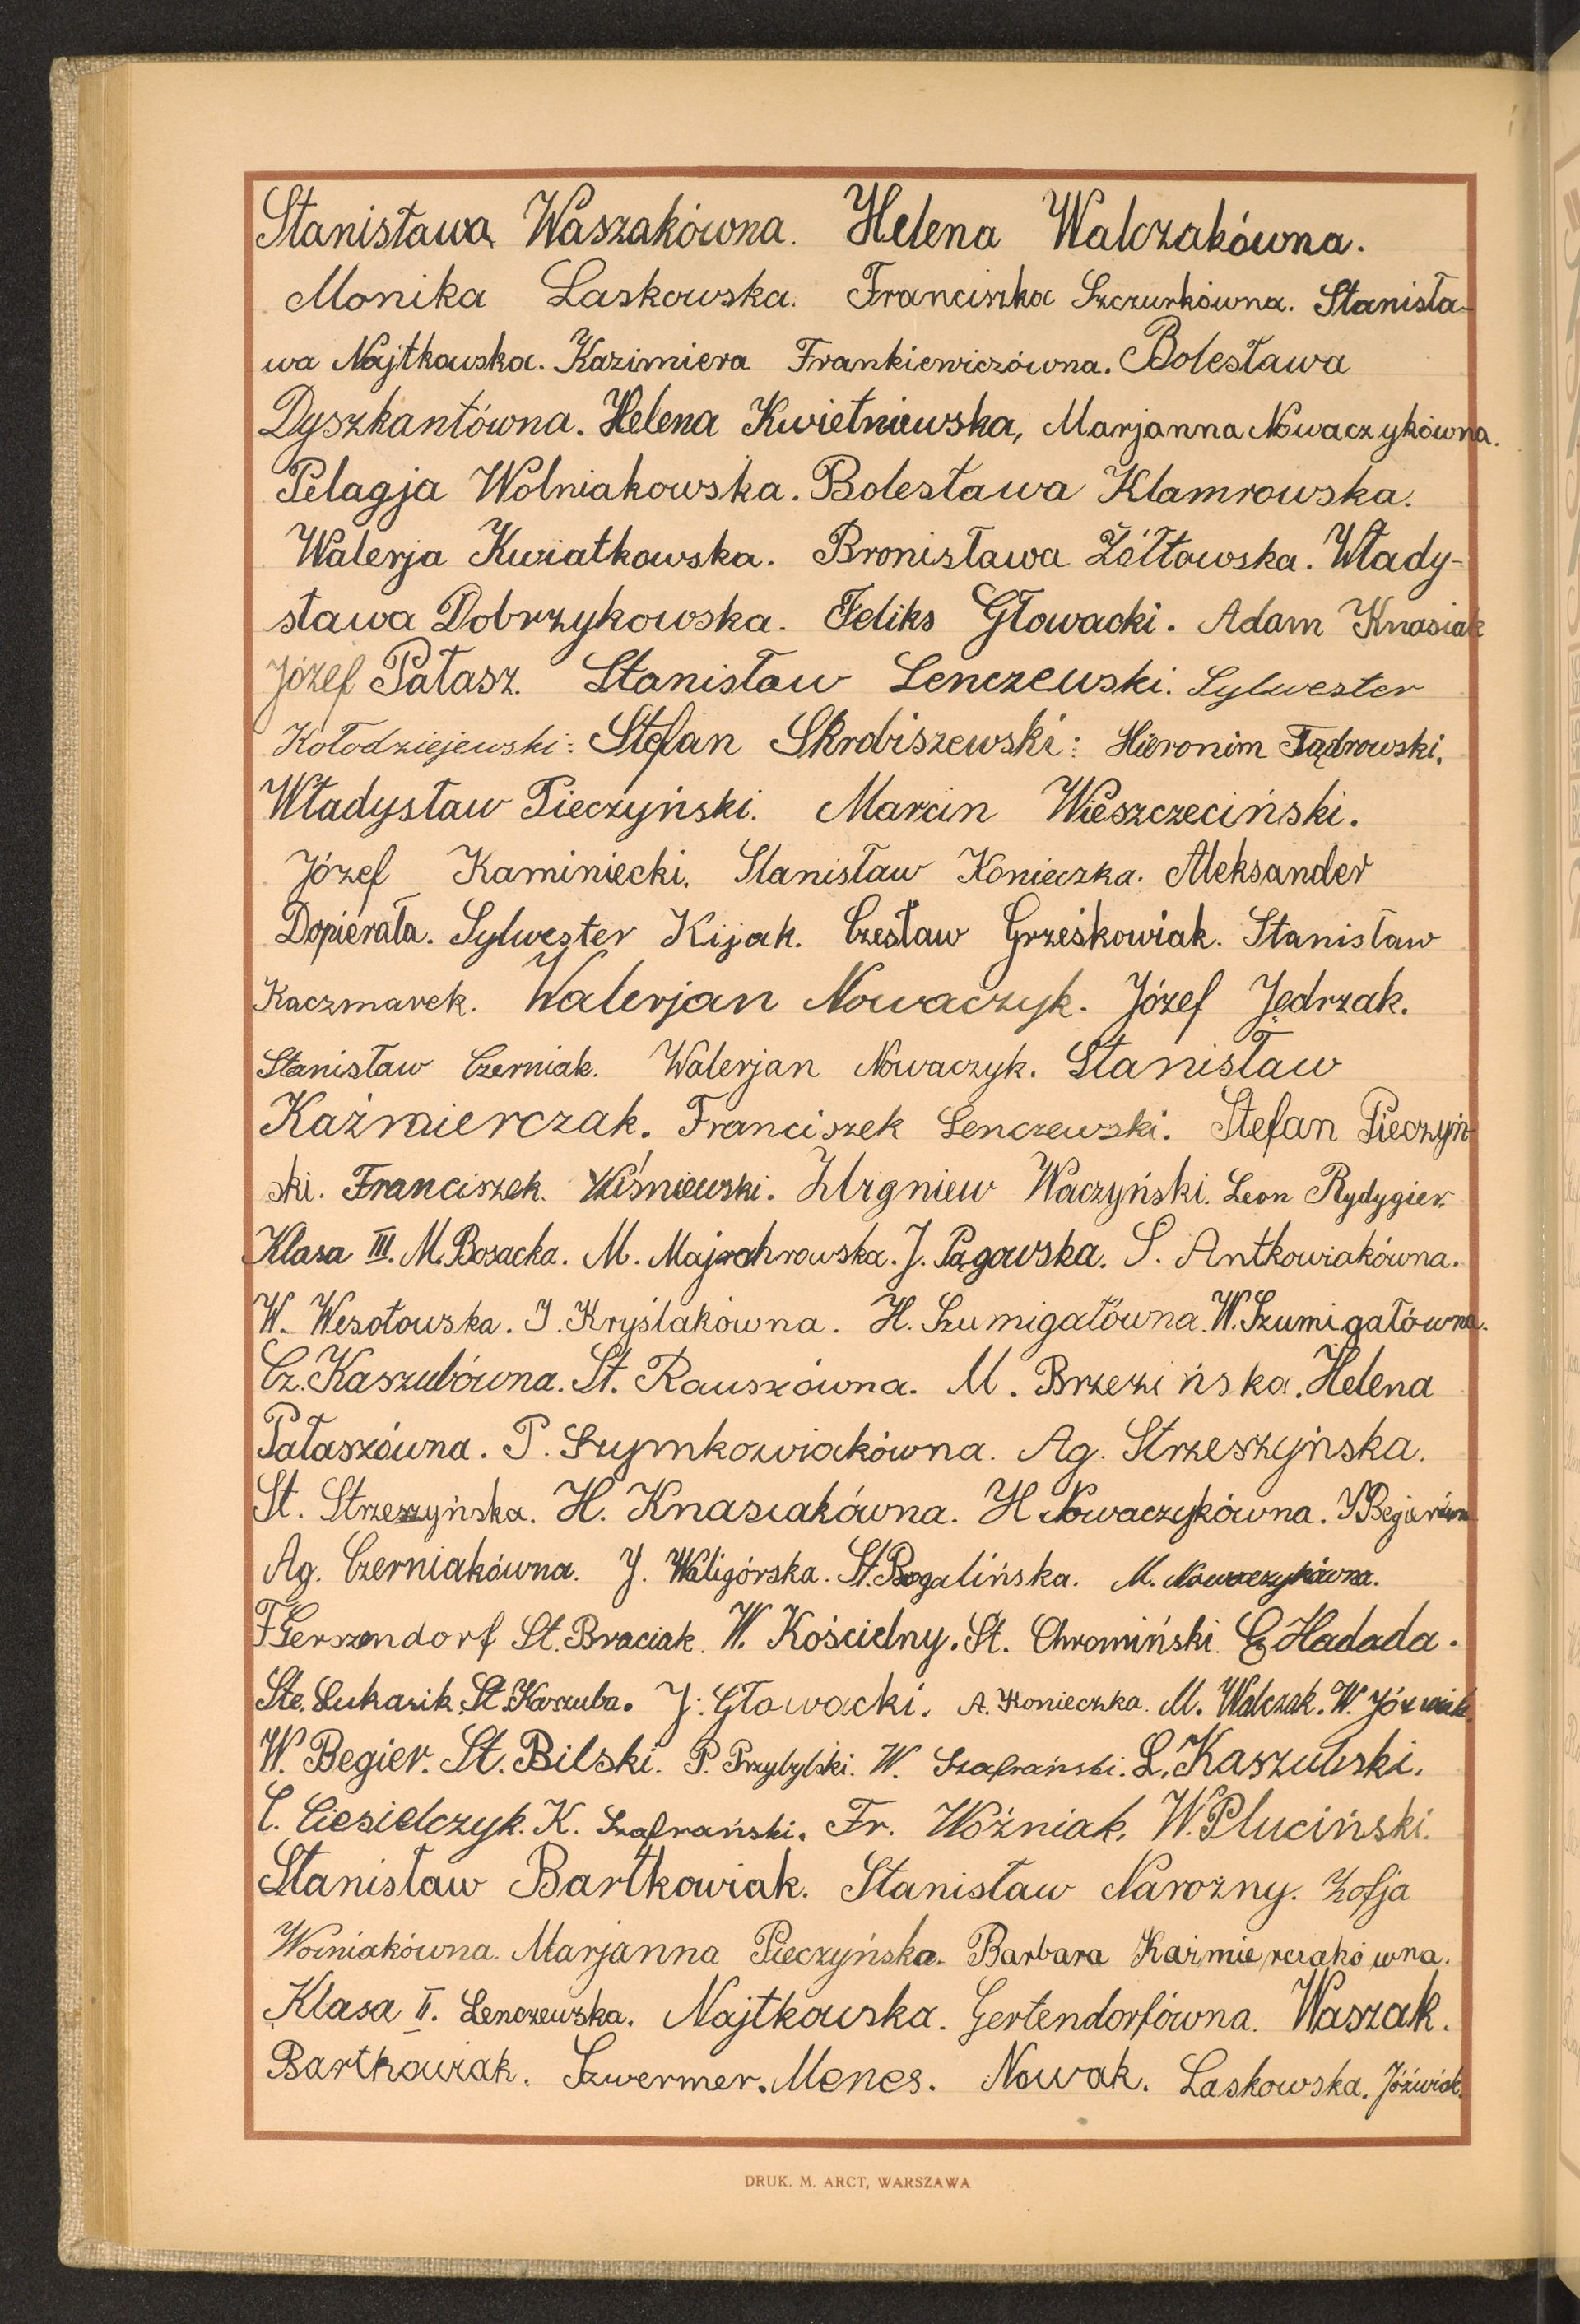 Stanisława Waszakówna. Helena Walczakówna.
Monika Laskowska. Franciszka Szczurkówna. Stanisła-
wa Najtkowska. Kazimiera Frankiewiczówna. Bolesława
Dyszkantówna. Helena Kwietniewska, Marjanna Nowaczykówna.
Pelagja Wolniakowska. Bolesława Klamrowska.
Walerja Kwiatkowska. Bronisława Żółtowska. Włady-
sława Dobrzykowska. Feliks Głowacki. Adam Knasiak
Józef Pałasz. Stanisław Lenczewski. Sylwester
Kołodziejewski: Stefan Skrobiszewski: Hieronim Tądrowski.
Władysław Pieczyński. Marcin Wieszczeciński.
Józef Kaminiecki. Stanisław Konieczka. Aleksander
Dopierała. Sylwester Kijak. Czesław Grześkowiak. Stanisław
Kaczmarek. Walerjan Nowaczyk. Józef Jędrzak.
Stanisław Czerniak. Walerjan Nowaczyk. Stanisław
Kaźmierczak. Franciszek Lenczewski. Stefan Pieczyń-
ski. Franciszek Wiśniewski. Zbigniew Waczyński. Leon Rydygier.
Klasa III. M. Bosacka. M. Majchrowska. J. Pągowska. S. Antkowiakówna.
W. Wesołowska. J. Kryślakówna. H. Szumigałówna. W. Szumigałówna.
Cz. Kaszubówna. St. Rauszówna. M. Brzezińska. Helena
Pałaszówna. P. Szymkowiakówna. Ag. Strzeszyńska.
St. Strzeszyńska. H. Knasiakówna. H Nowaczykówna. J Begierówna
Ag. Czerniakówna. J. Waligórska. St. Rogalińska. M. Nowaczykówna.
F Gerszendorf St. Braciak. W. Kościelny. St. Chromiński. Cz Hadada.
Ste. Łukasik. St. Kaszuba. J. Głowacki. A. Konieczka. M. Walczak. W. Józwiak.
W. Begier. St. Bilski. P. Przybylski. W. Szafrański. L. Kaszubski.
C. Ciesielczyk. K. Szafrański. Fr. Woźniak. W. Pluciński.
Stanisław Bartkowiak. Stanisław Narozny. Zofja
Woźniakówna. Marjanna Pieczyńska. Barbara Kaźmierczakówna.
Klasa II. Lenczewska. Najtkowska. Gertendorfówna. Waszak.
Bartkowiak. Szwermer. Menes. Nowak. Laskowska. Jóźwiak.
DRUK. M. ARCT, WARSZAWA